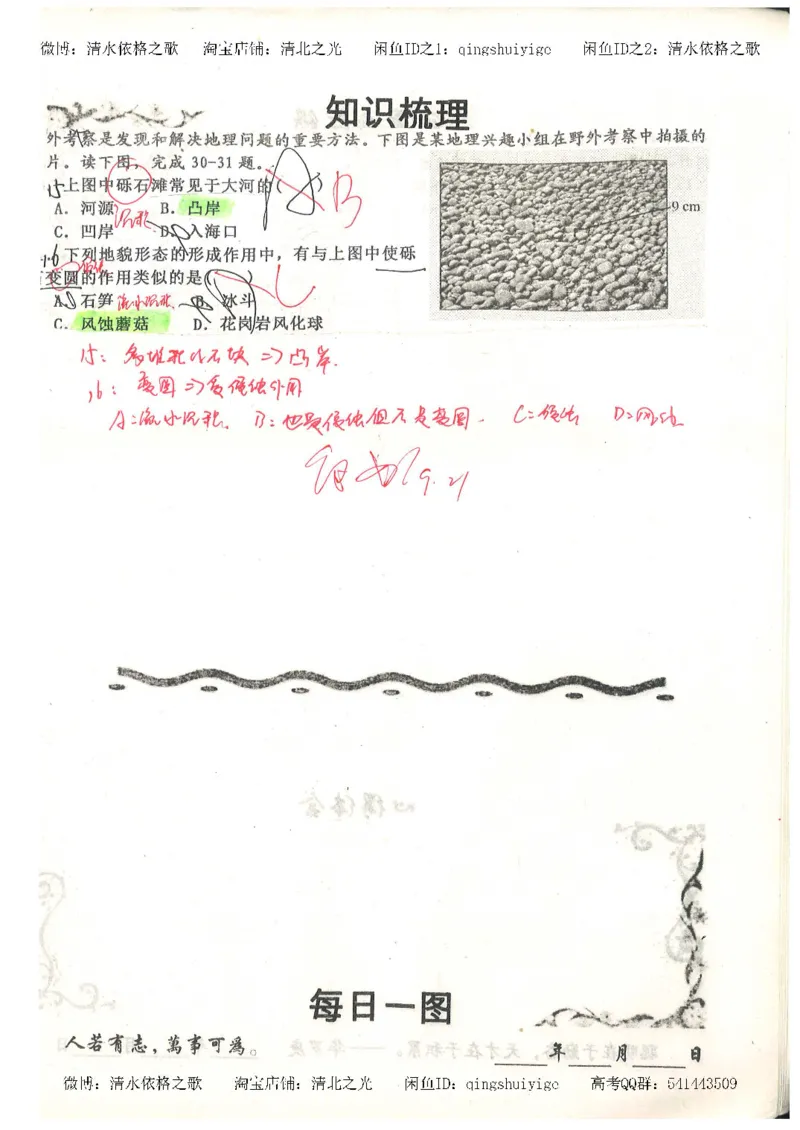 微博：清水依格之歌 淘宝店铺：清北之光 闲鱼ID之1：qingshuiyige 闲鱼ID之2：清水依格之歌
知识梳理
外考察是发现和解决地理问题的重要方法。下图是某地理兴趣小组在野外考察中拍摄的
片。读下图，完成 30-31 题。
15 上图中砾石滩常见于大河的( ) B
A. 河源 B. 凸岸
沉积
9 cm
C. 凹岸 D. 入海口
16 下列地貌形态的形成作用中，有与上图中使砾
变圆的作用类似的是( ) C
A. 石笋 流水沉积 B. 冰斗
C. 风蚀蘑菇 D. 花岗岩风化球
15: 多堆积小石块 => 凸岸.
16: 变圆 => 受侵蚀作用
A: 流水沉积. B: 也是侵蚀但不是变圆. C: 侵蚀 D:
9.21
每日一图
人若有志，萬事可為。
年 月 日
微博：清水依格之歌 淘宝店铺：清北之光 闲鱼ID：qingshuiyige 高考QQ群：541443509